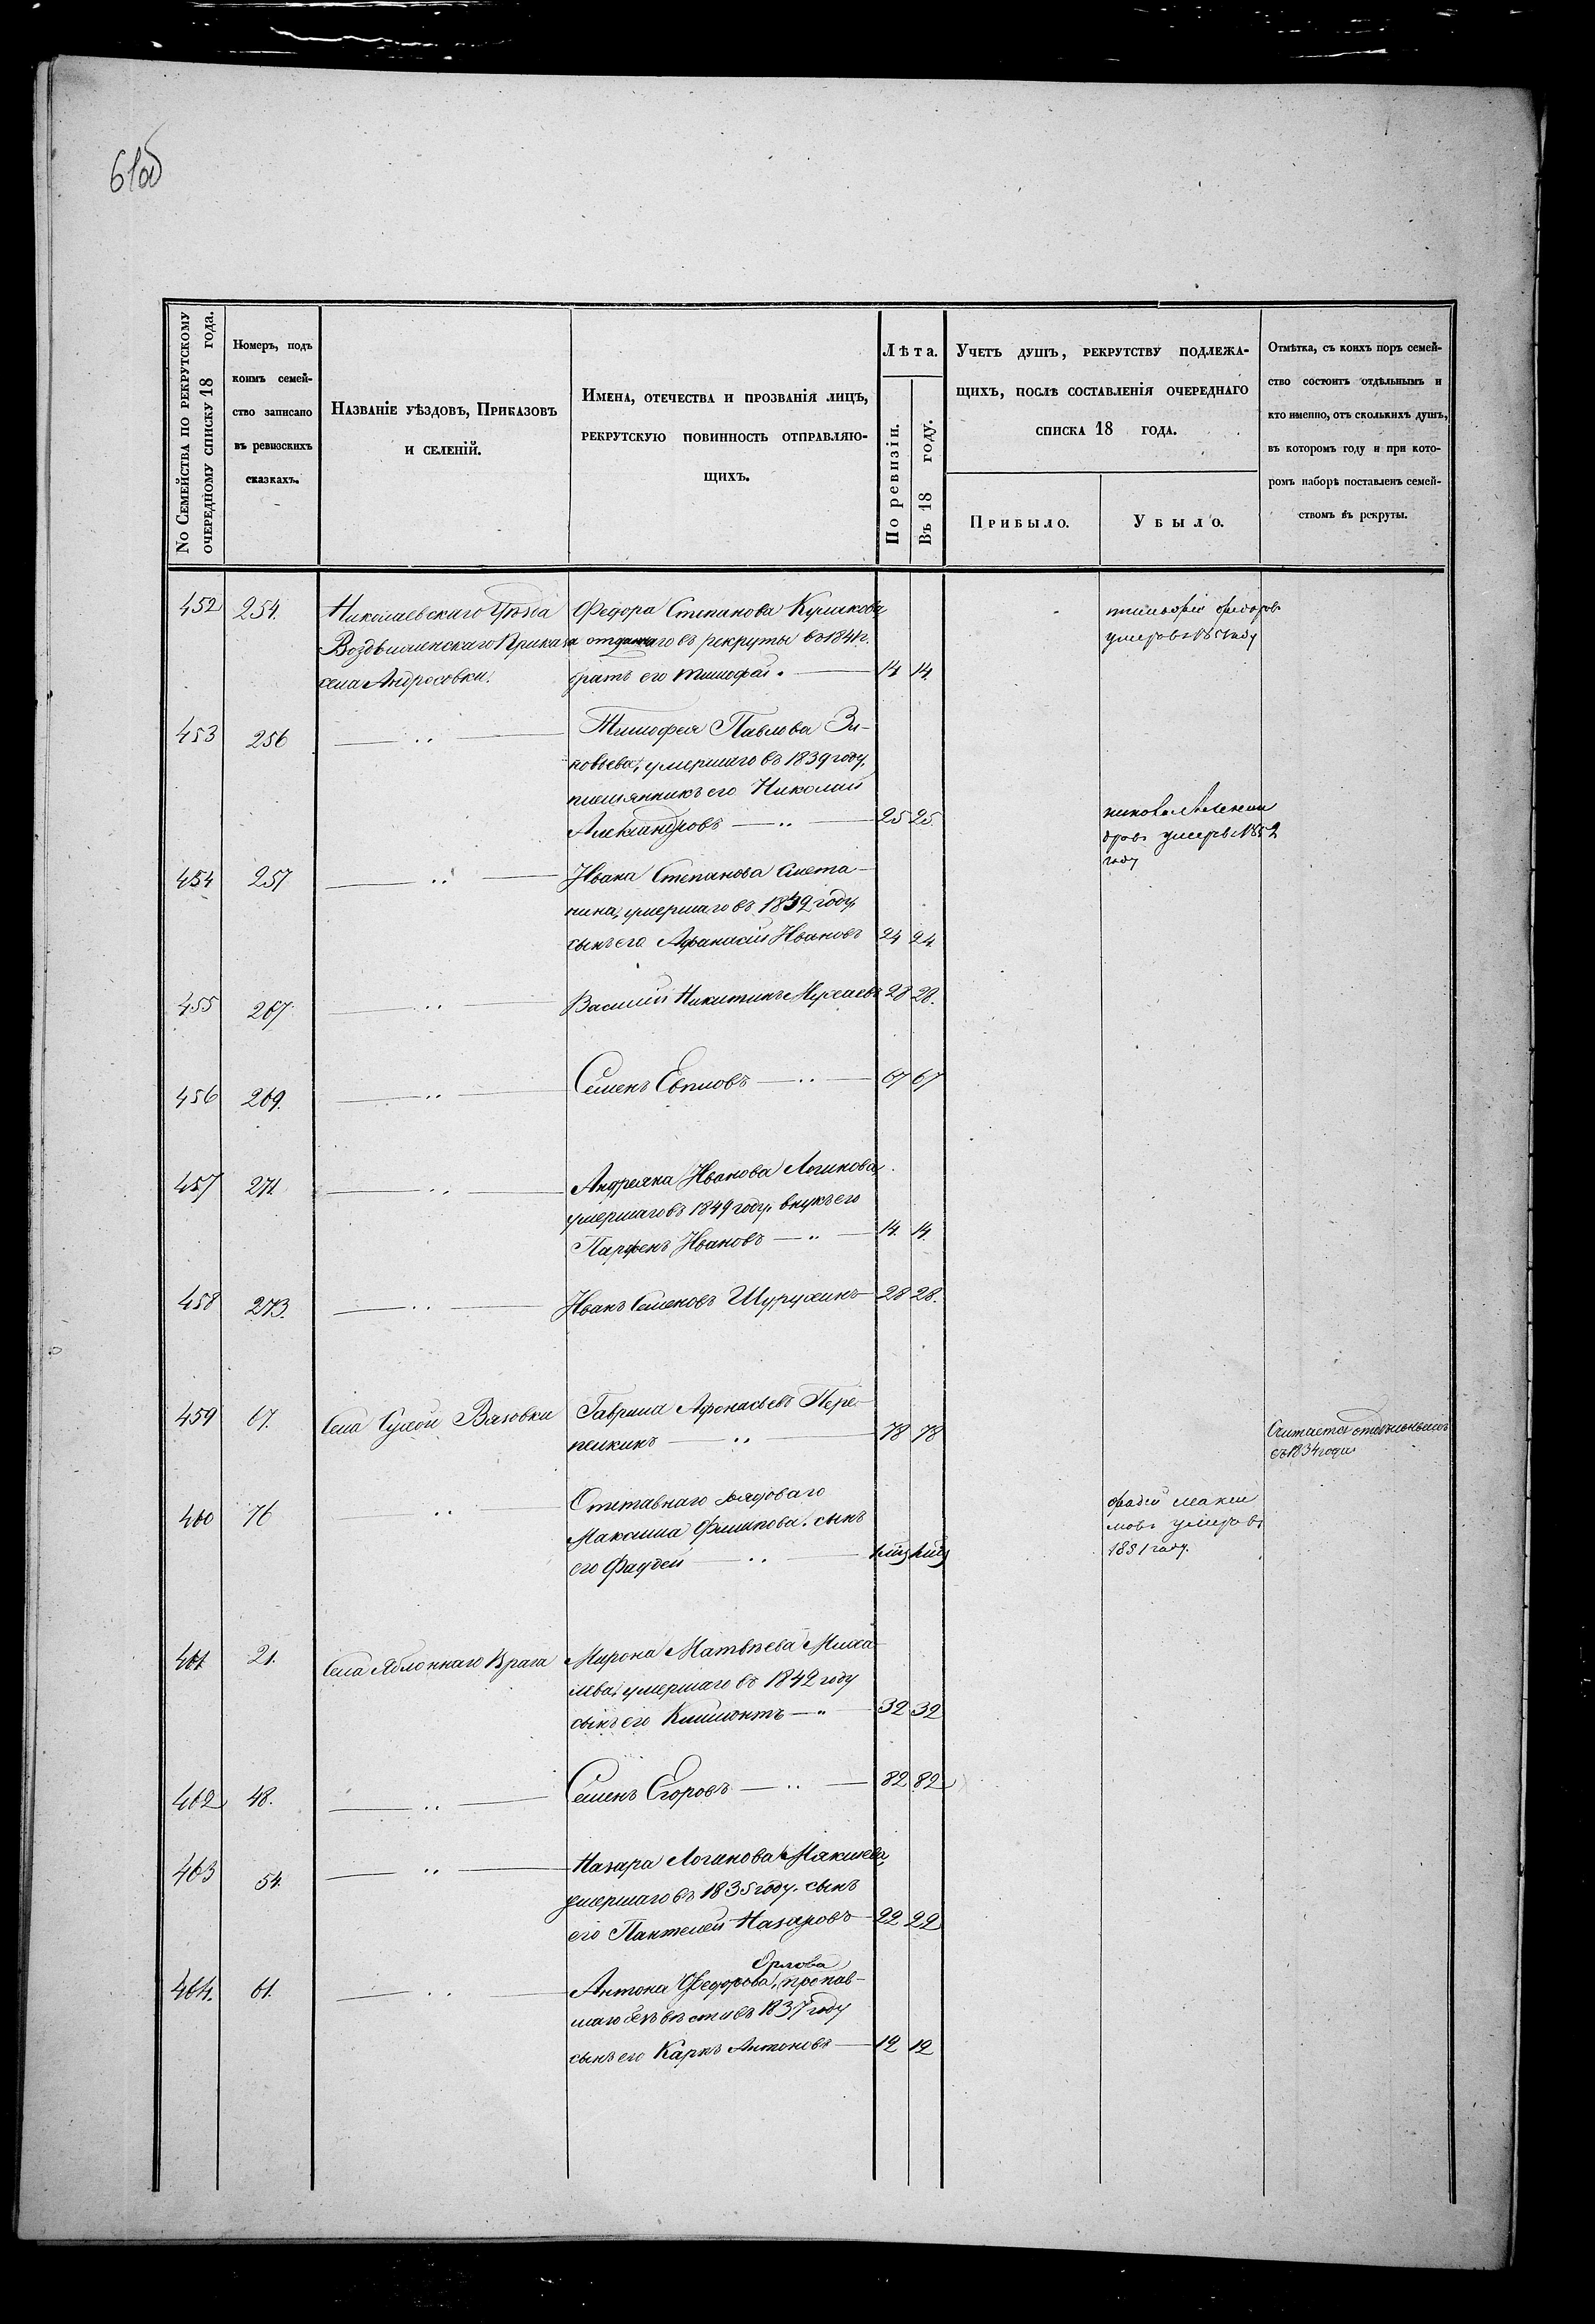 61об
No Семейства по рекрутскому
очередному списку 18 года.
Номеръ, подъ
коимъ семей-
ство записано
въ ревизскихъ
сказкахъ.
Названіе уѣздовъ, Приказовъ
и селеній.
Имена, отечества и прозванія лицъ,
рекрутскую повинность отправляю-
щихъ.
Лѣта.
По ревизіи.
Въ 18 году.
Учетъ душъ, рекрутству подлежа-
щихъ, послѣ составленія очереднаго
списка 18 года.
Прибыло.
Убыло.
Отмѣтка, съ коихъ поръ семей-
ство состоитъ отдѣльнымъ и
кто именно, отъ сколькихъ душъ,
въ которомъ году и при кото-
ромъ наборѣ поставленъ семей-
ствомъ въ рекруты.
452 254. Николаевскаго Уѣзда Федора Степанова Кулакова,
Воздвиженскаго Приказа отданнаго въ рекруты въ 184 г.
села Андросовки. братъ его Тимофей. 14 14
умеръ въ году
453 256 Тимофея Павлова Зи-
новьева, умершаго въ 1839 году,
племянникъ его Николай
Александровъ 25 25
никола Александ
ровъ умеръ в 1852
году
454 257 Ивана Степанова Смета-
нина, умершаго въ 1842 году,
сынъ его Афанасій Ивановъ 24 24
455 267 Василий Никитинъ 28 28.
456 269. Семенъ 67 67
457 271 Андреяна Ивановa Логинова,
умершаго въ 1849 году, внукъ его
Парфенъ Ивановъ 14. 14
458 273. Иванъ Семеновъ Шурухинъ 28 28.
459 67. Села Сухой Вязовки Гаврила Афонасьевъ Пере-
пелкинъ 78 78
Считается отдѣльнымъ
съ 1834 года
460 76 Отставнаго рядоваго
Максима Филипова. сынъ
его Фадѣей
Фадей Макси
мовъ умеръ в
1851 году.
461 21. Села Яблоннаго Врага Мирона Матвѣева Миха
лева, умершаго въ 1842 году
сынъ его Климонтъ 32 32
462 48. Семенъ Егоровъ 82 82
463 54. Назара Логинова Макшева,
умершаго въ 1835 году. сынъ
его Пантелей Назаровъ 22 22
464. 61. Орлова
Антона Федорова, пропав-
шаго безъ вѣсти въ 1837 году
сынъ его Карпъ Антоновъ 12 12